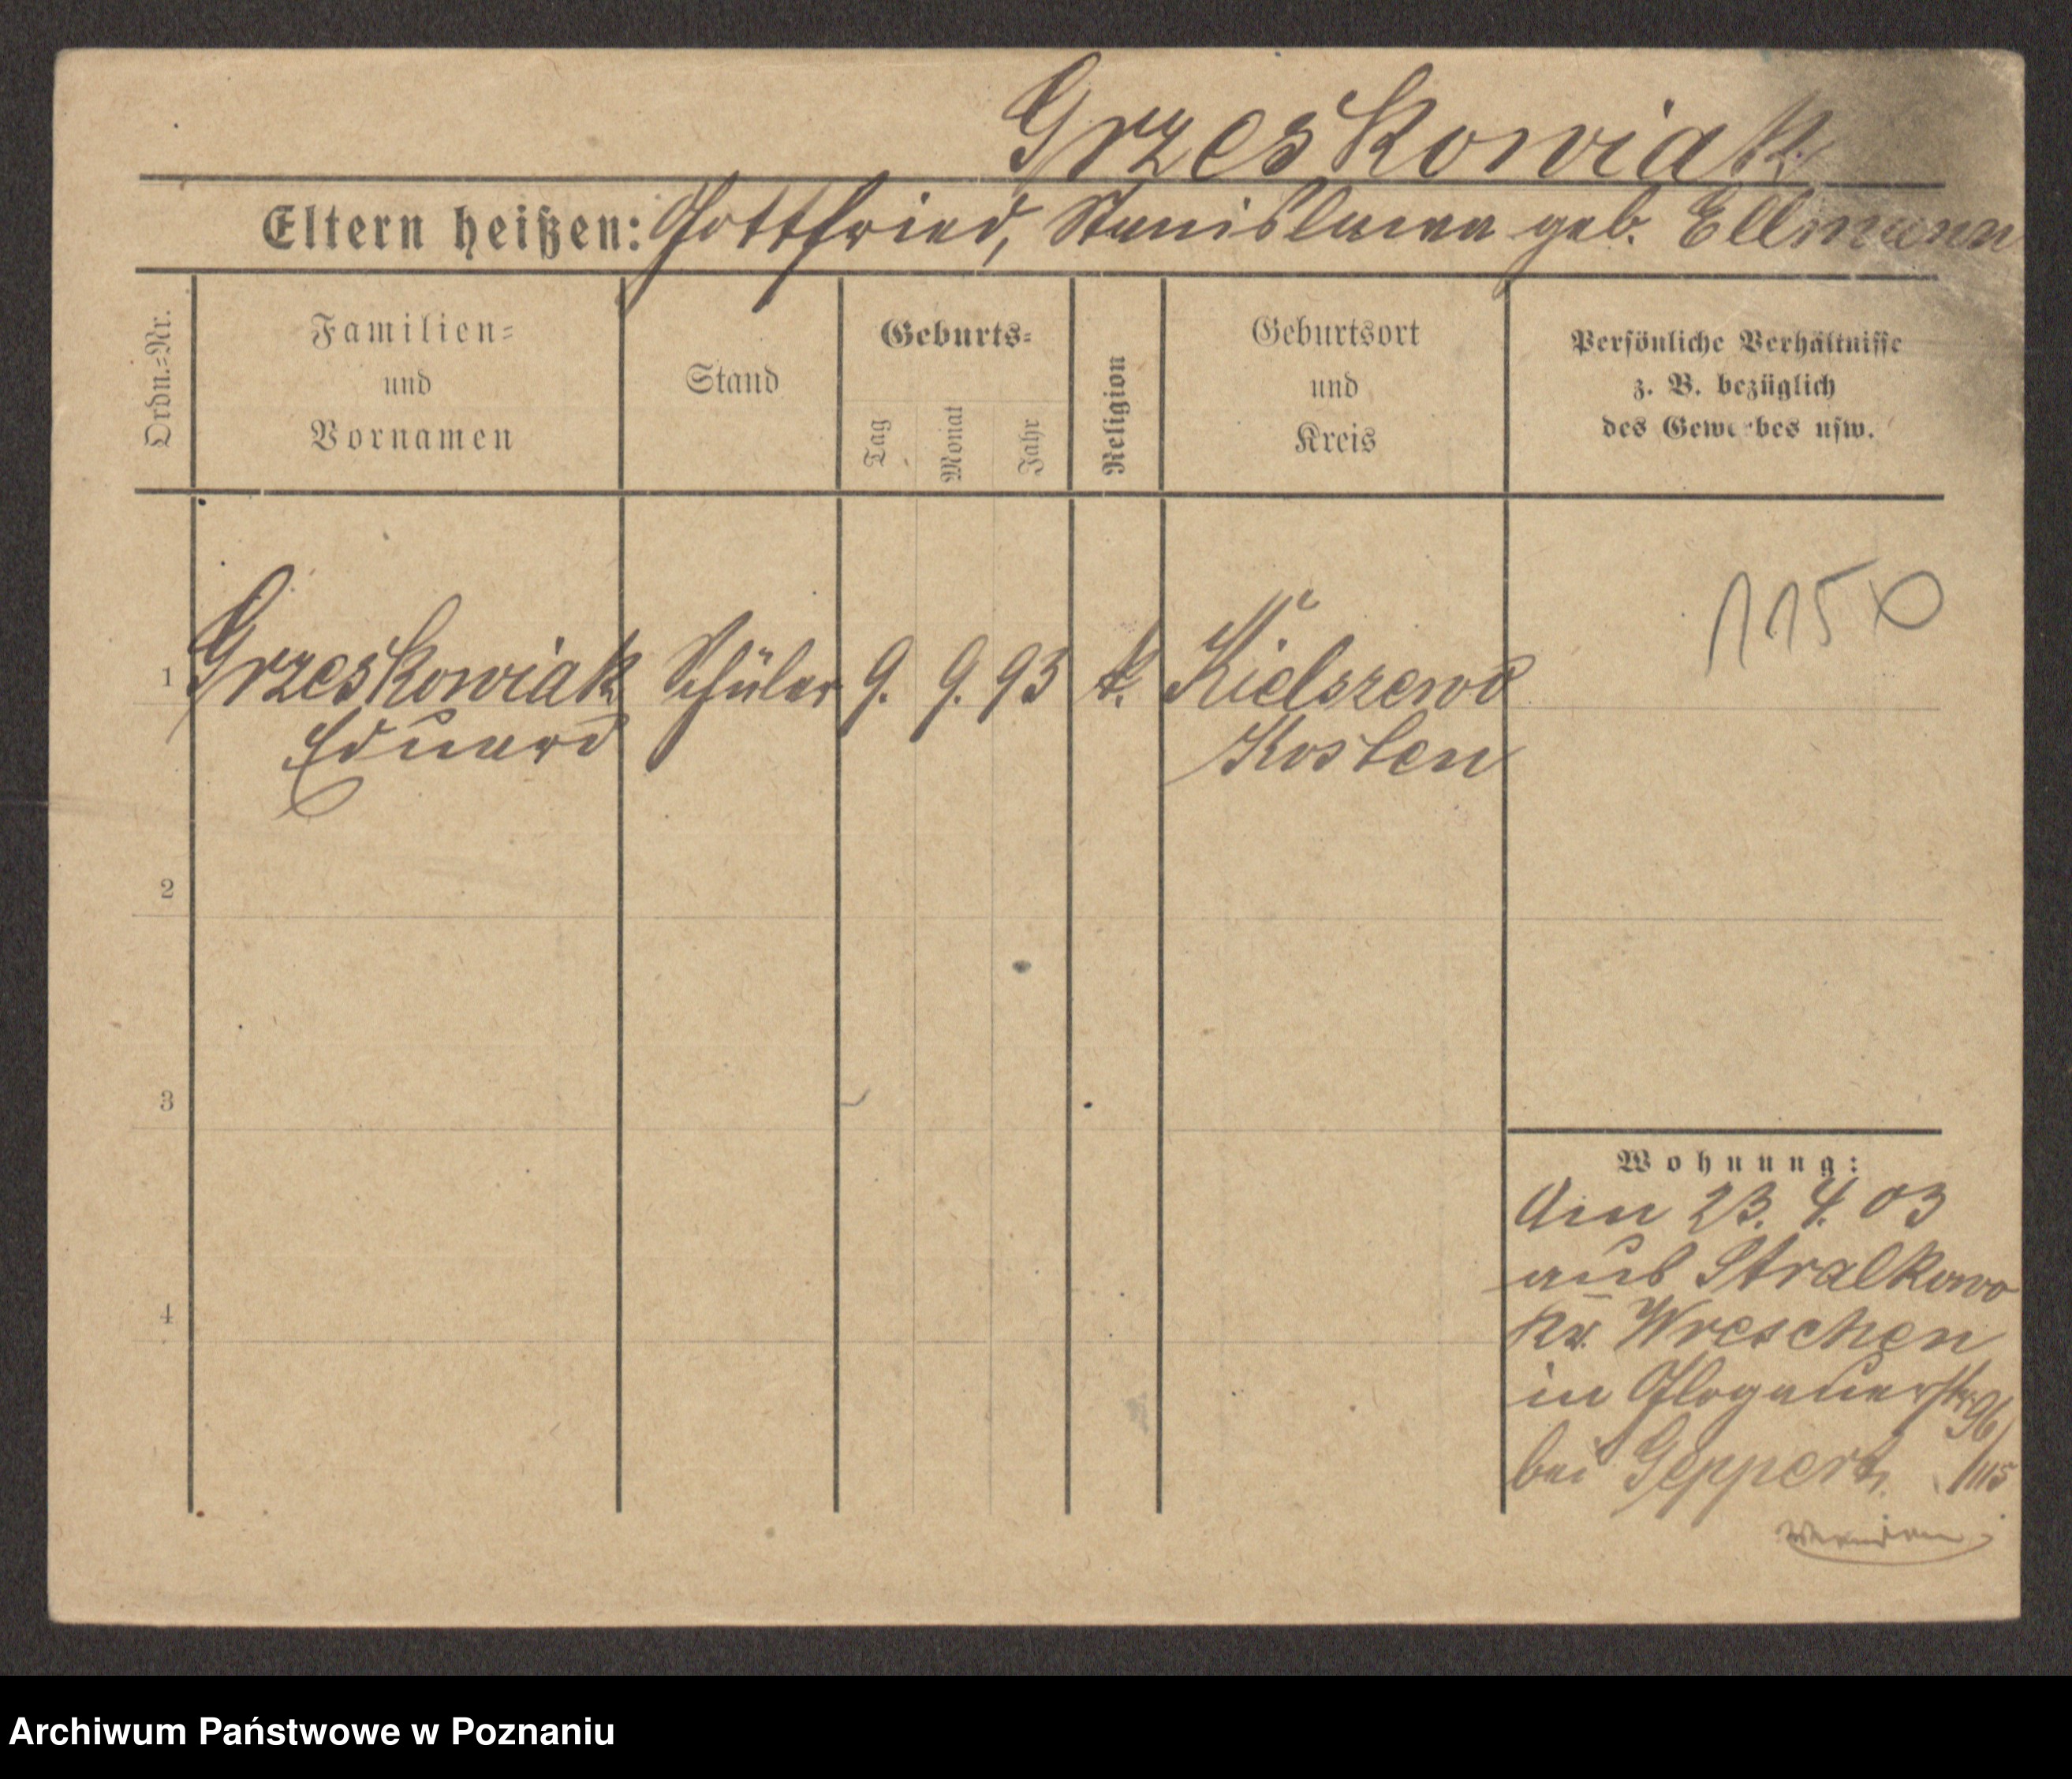 Grzeskowiak
Eltern heißen: Gottfried, Stanislawa geb. Ellmann
Ordn.=Nr.
Familien=
und
Vornamen
Stand
Geburts=
Tag
Monat
Jahr
Religion
Geburtsort
und
Kreis
Persönliche Verhältnisse
z. B. bezüglich
des Gewerbes usw.
1150
1 Grzeskowiak Schüler 9. 9. 93 k. Kielszewo
Eduard Kosten
2
3
4
Wohnung:
Am 23. 4. 03
aus Stralkowo
Kr. Wreschen
in Glogauerstr. 96
bei Geppert. 1/115
Archiwum Państwowe w Poznaniu